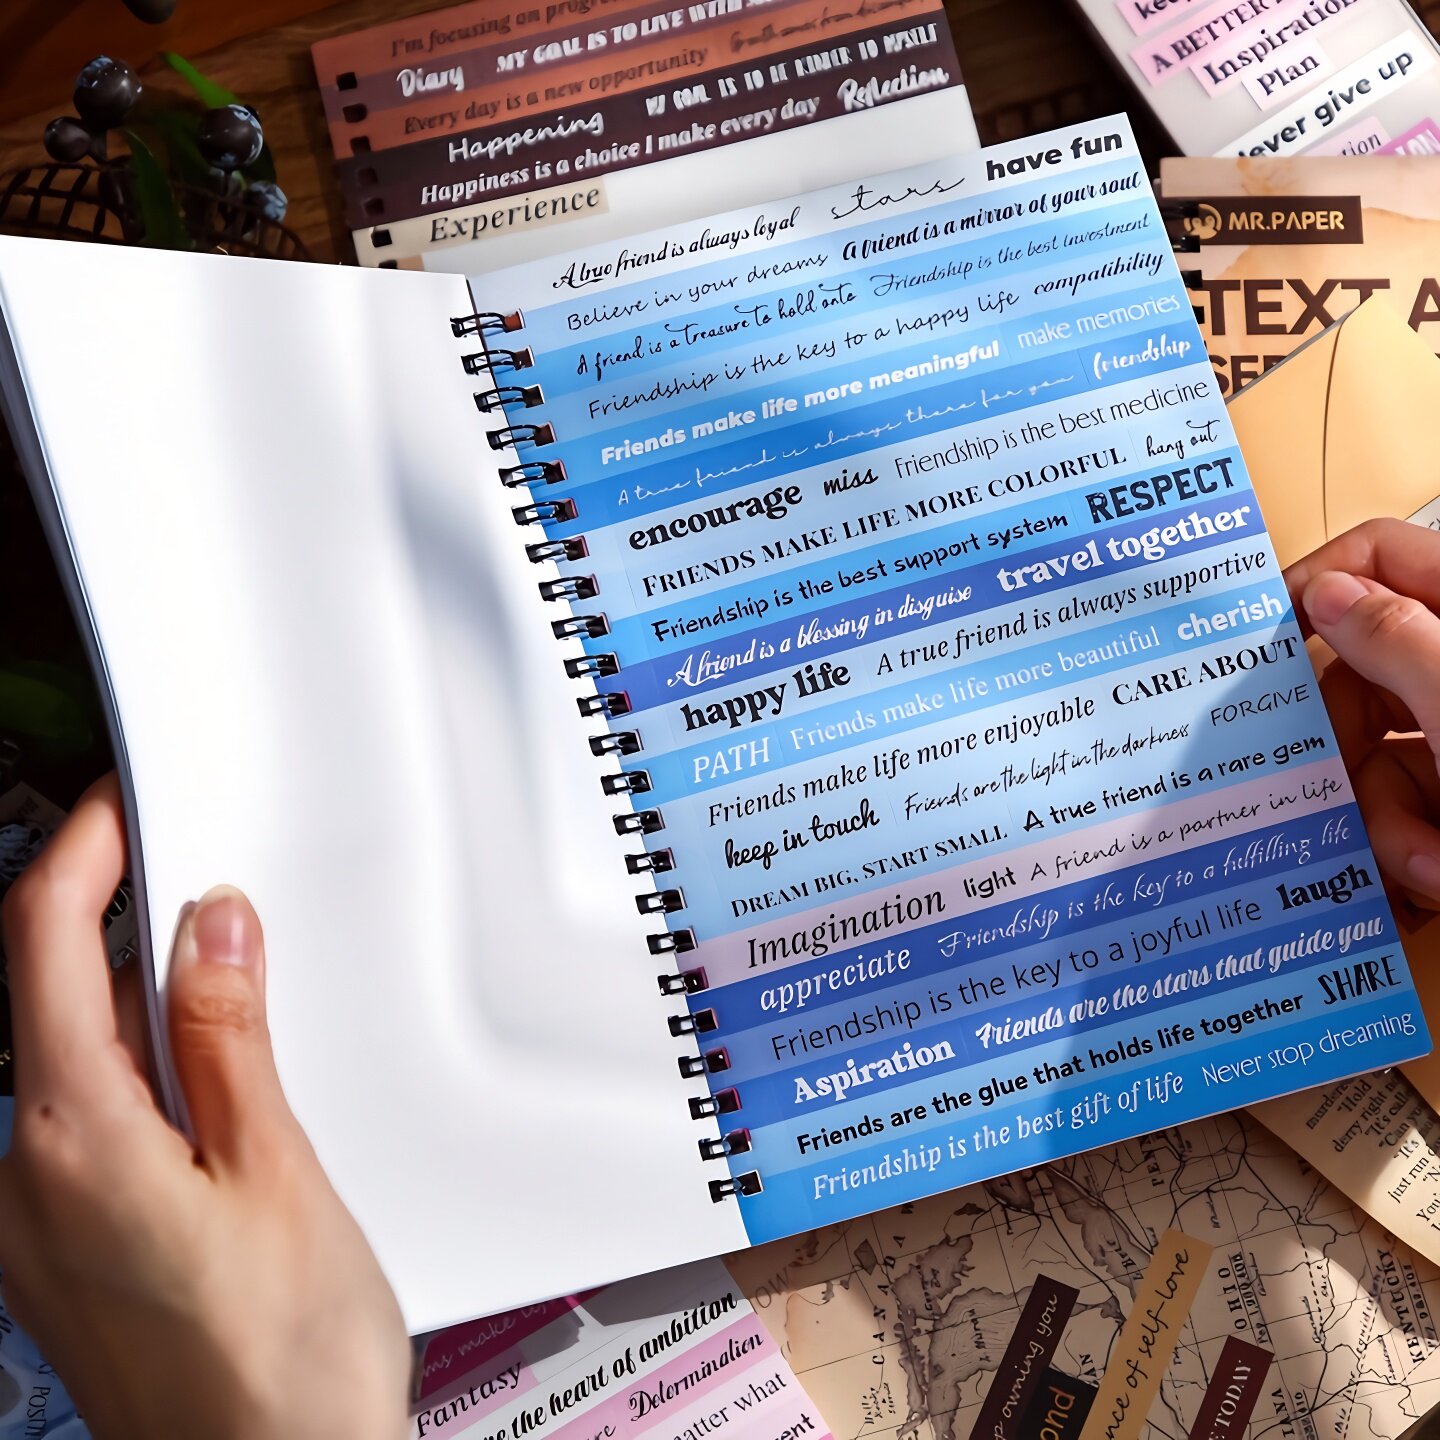 I'm focusing on progress
Diary MY GOAL IS TO LIVE WITH
Every day is a new opportunity
Happening MY GOAL IS TO BE KINDER TO MYSELF
Happiness is a choice I make every day Reflection
Experience
A BETTER
Inspiration
Plan
never give up
MR.PAPER
TEXT
A true friend is always loyal stars have fun
Believe in your dreams A friend is a mirror of your soul
A friend is a treasure to hold onto Friendship is the best investment
Friendship is the key to a happy life compatibility
Friends make life more meaningful make memories
A true friend is always there for you friendship
encourage miss Friendship is the best medicine
FRIENDS MAKE LIFE MORE COLORFUL hang out
Friendship is the best support system RESPECT
A friend is a blessing in disguise travel together
happy life A true friend is always supportive
PATH Friends make life more beautiful cherish
Friends make life more enjoyable CARE ABOUT
keep in touch Friends are the light in the darkness FORGIVE
DREAM BIG, START SMALL A true friend is a rare gem
Imagination light A friend is a partner in life
appreciate Friendship is the key to a fulfilling life
Friendship is the key to a joyful life laugh
Aspiration Friends are the stars that guide you
Friends are the glue that holds life together SHARE
Friendship is the best gift of life Never stop dreaming
Fantasy
the heart of ambition
Determination
matter what
CANADA
OHIO
KENTUCKY
owning you
of self-love
TODAY
"Hold
derry right
Just run